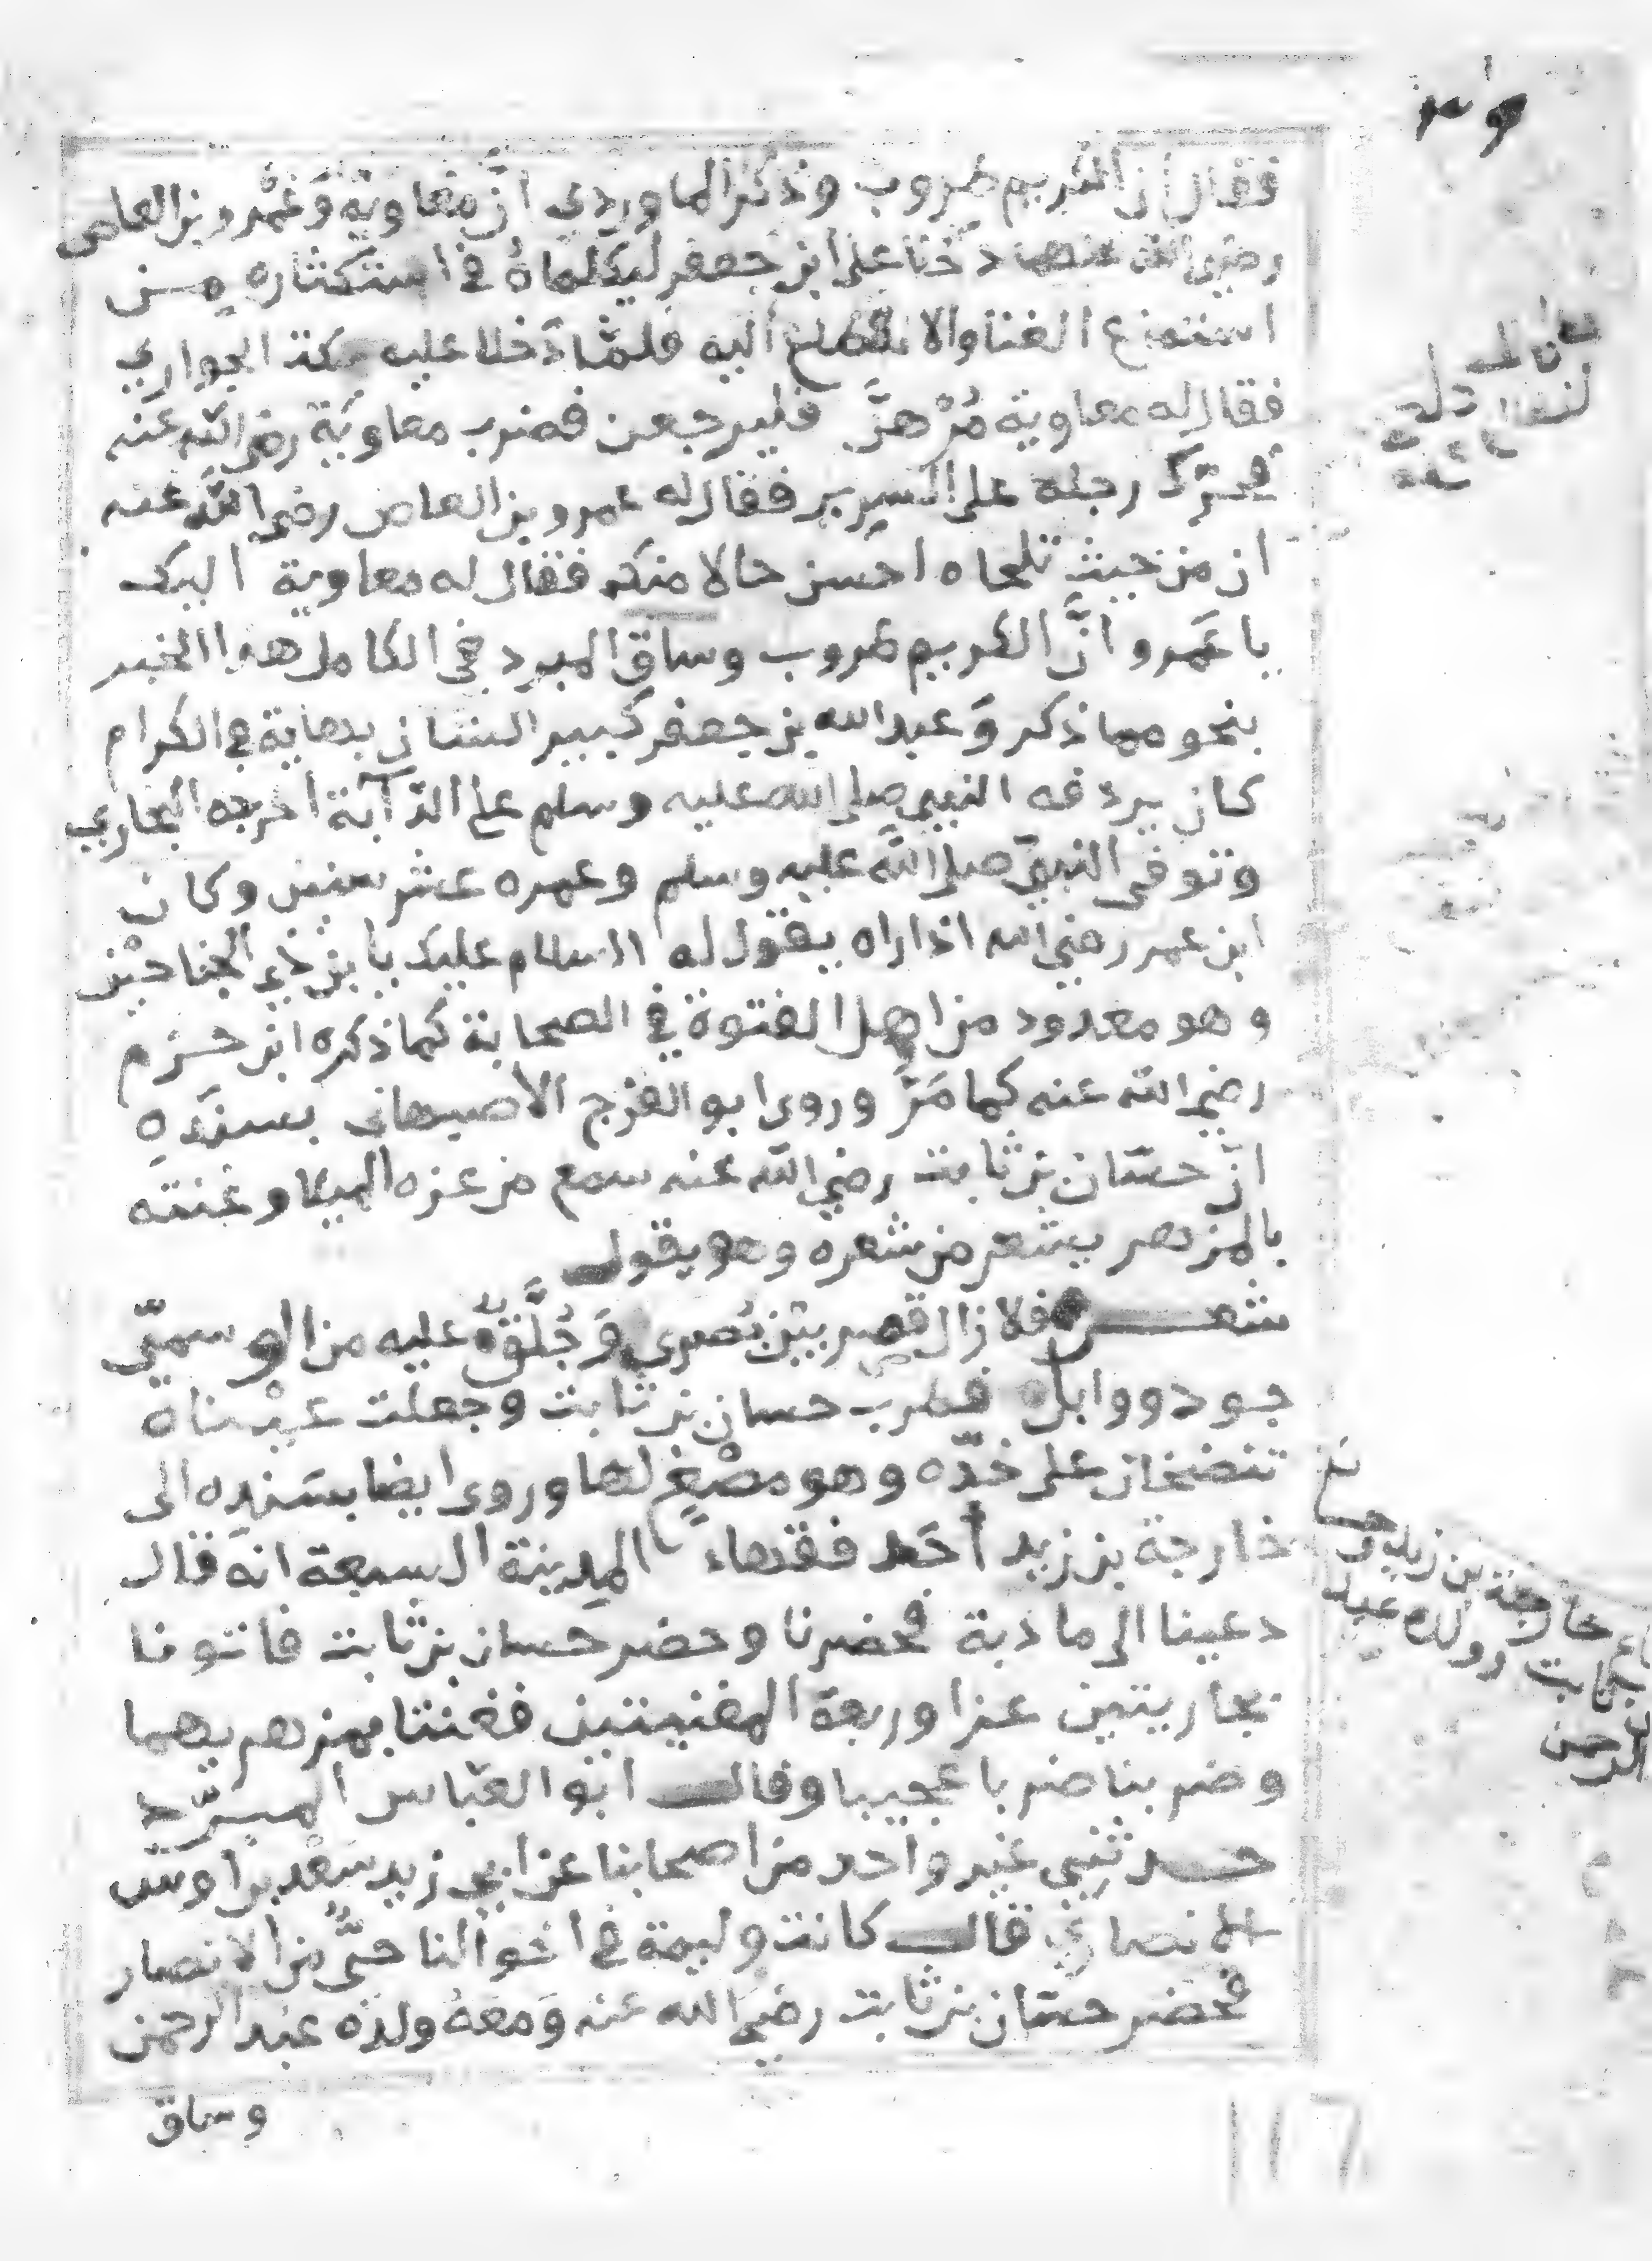 ٣٩
فقال ان الكريم طروب وذكر الماوردي انَّ معاوية وَعَمْرو بن العاص
رضي الله عنهما دخلا على ابن جعفر ليكلماهُ في استكثاره مـن
الغنا والانقطاع اليه فلمّا دَخلا عليه سكت الجواري
فقال له معاوية مُرْ هنَّ فليرجعن فضرب معاويَة رضي الله عنه
فحرّك رجله على السرير فقال له عمرو بن العاص رضي اللَّه عنه
ان من حيث تلحاه احسن حالا منكَ فقال له معاوية اليك
يا عَمرو انَّ الكريم طروب وساق المبرد في الكامل هذا الخبر
بنحو مما ذكر وَعبد الله بن جعفر كبير الشان في الكرام
كان يردفه النبي صلى الله عليه وسلم على الدّآبَة اخرجه البخاري
وتوفى النبيّ صلى اللَّه عليه وسلم وعمره عشر سنين وكان
ابن عمر رضي الله اذا راه يقول له السلام عليك يا بن ذي الجناحيْن
وهو معدود من اهل الفتوة في الصحابة كما ذكره ابن حـزم
رضي الله عنه كما مَرَّ وروى ابو الفرج الأصبهاني بسنَدِهِ
انّ حسّان بن ثابت رضي اللّه عنه سمع من عزه الميلا وغنته
بالمزهر بشعر من شعره وهو يقول
شعـــر فلا زال قصر بيْن بُصرى وَجُلَّقٌ عليه من الوسميّ
جود ووابل فطرب حسان بن ثابت وجعلت عيْـناه
تنضخان على خدّه وهو مصْغٍ لها وروى ايضا بسَنده الى
خارجة بن زيد أحَد فقهاء المدينة السبعة انهَ قال
دعينا الى مادبة فحضرنا وحضر حَسان بن ثابت فاتونا
بجاريتين عزا وربعة المغنيتين فغنتا بمزهريهما
وضربنا ضربا عجيبا وقال ابو العبّاس المبـرّد
حـدثني غير واحد من اصحابنا عن ابي زيد سَعْد بن اوس
الانصاري قال كانت وليمة في اخوالنا حيٌّ من الانصار
فحضر حسّان بن ثابت رضي الله عنه وَمَعَهُ ولدَه عبْد الرحمن
وساق
خارجة بن زيد
ثابت وولده عبد
الرحمن
117